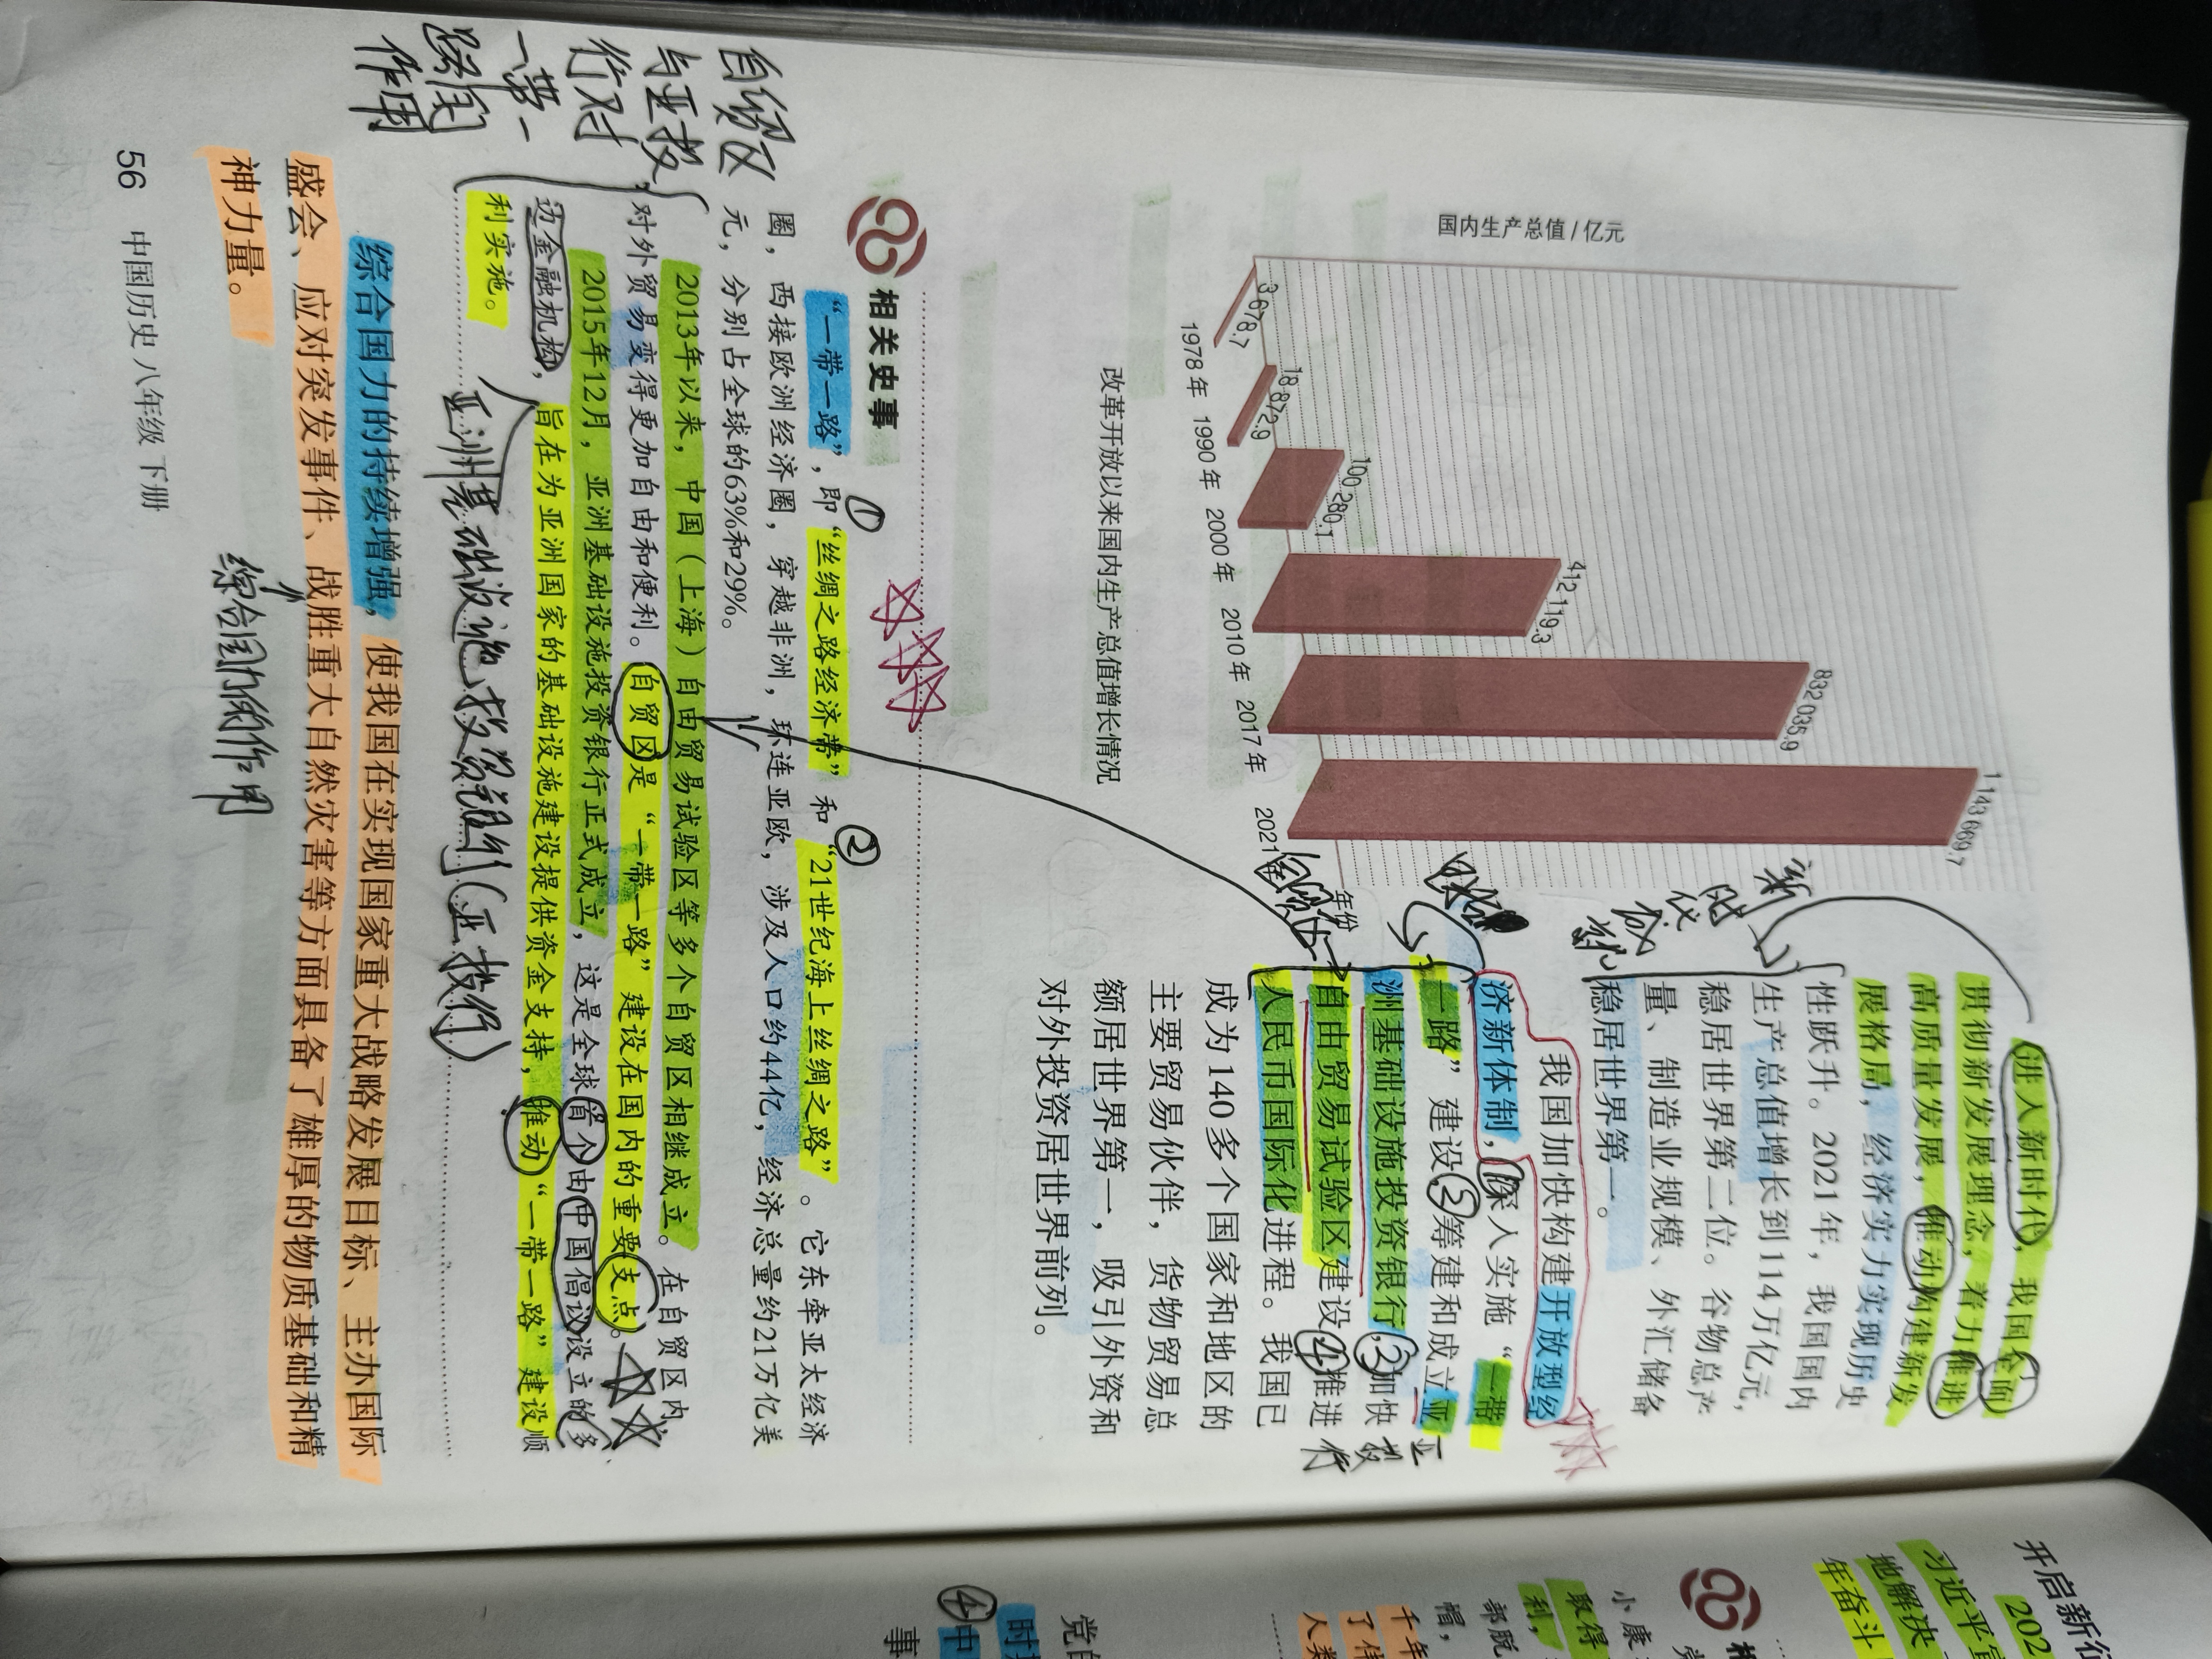 国内生产总值/亿元
3 678.7
18 872.9
100 280.1
412 119.3
832 035.9
1 143 669.7
1978年 1990年 2000年 2010年 2017年 2021年
年份
改革开放以来国内生产总值增长情况
进入新时代，我国全面
贯彻新发展理念，着力推进
高质量发展，推动构建新发
展格局，经济实力实现历史
性跃升。2021年，我国国内
生产总值增长到114万亿元，
稳居世界第二位。谷物总产
量、制造业规模、外汇储备
稳居世界第一。
新时代成就
我国加快构建开放型经
济新体制，①深入实施“一带
一路”建设②筹建和成立亚
洲基础设施投资银行，③加快
自由贸易试验区建设④推进
人民币国际化进程。我国已
成为140多个国家和地区的
主要贸易伙伴，货物贸易总
额居世界第一，吸引外资和
对外投资居世界前列。
亚投行
相关史事
①
②
“一带一路”，即“丝绸之路经济带”和“21世纪海上丝绸之路”。它东牵亚太经济
圈，西接欧洲经济圈，穿越非洲，环连亚欧，涉及人口约44亿，经济总量约21万亿美
元，分别占全球的63%和29%。
2013年以来，中国（上海）自由贸易试验区等多个自贸区相继成立。在自贸区内，
对外贸易变得更加自由和便利。自贸区是“一带一路”建设在国内的重要支点。
2015年12月，亚洲基础设施投资银行正式成立，这是全球首个由中国倡议设立的多
边金融机构，旨在为亚洲国家的基础设施建设提供资金支持，推动“一带一路”建设顺
利实施。
自贸区
与亚投
行对
一带一
路的
作用
亚洲基础设施投资银行(亚投行)
综合国力的持续增强，使我国在实现国家重大战略发展目标、主办国际
盛会、应对突发事件、战胜重大自然灾害等方面具备了雄厚的物质基础和精
神力量。
综合国力的作用
56 中国历史 八年级 下册
开启新征
202
习近平宣
地解决
年奋斗
相
小康
部脱
帽，
取得
利，
千年
了伟
人类
党的
时
④中
事